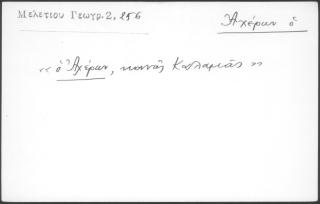 Μελετίου Γεωγρ.2, 256
Ἀχέρων ὁ
« ὁ Ἀχέρων, κοινῶς Καλαμιᾶς »